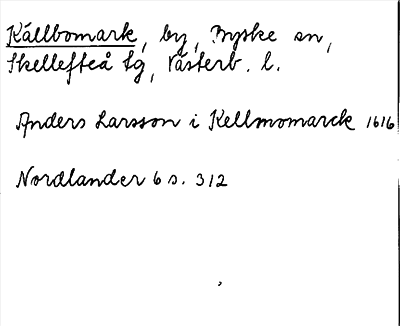 Källbomark, by, Byske sn,
Skellefteå tg, Västerb. l.
Anders Larsson i Kellmomarck 1616
Nordlander 6 s. 312